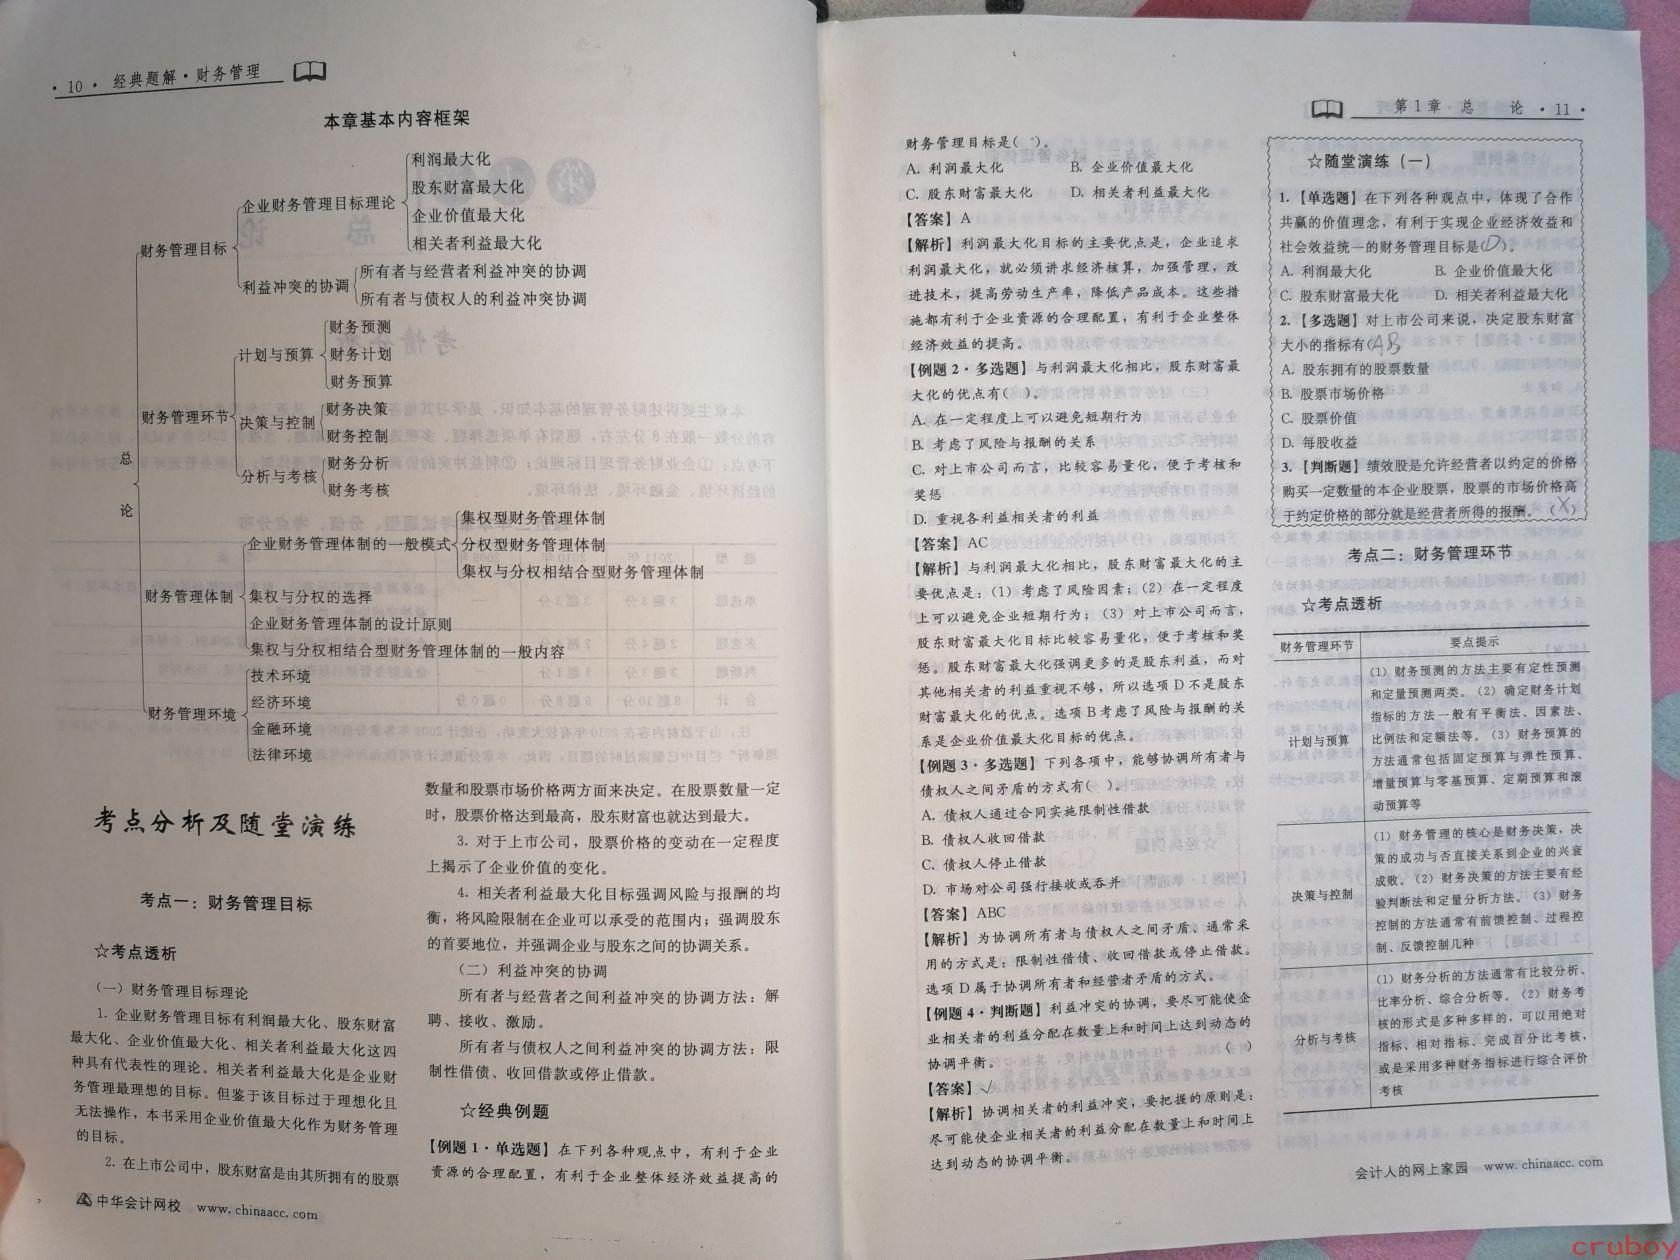 · 10 · 经典题解·财务管理
本章基本内容框架
总
论
财务管理目标
企业财务管理目标理论
利润最大化
股东财富最大化
企业价值最大化
相关者利益最大化
利益冲突的协调
所有者与经营者利益冲突的协调
所有者与债权人的利益冲突协调
财务管理环节
计划与预算
财务预测
财务计划
财务预算
决策与控制
财务决策
财务控制
分析与考核
财务分析
财务考核
财务管理体制
企业财务管理体制的一般模式
集权型财务管理体制
分权型财务管理体制
集权与分权相结合型财务管理体制
集权与分权的选择
企业财务管理体制的设计原则
集权与分权相结合型财务管理体制的一般内容
财务管理环境
技术环境
经济环境
金融环境
法律环境
考点分析及随堂演练
考点一：财务管理目标
☆考点透析
（一）财务管理目标理论
1. 企业财务管理目标有利润最大化、股东财富
最大化、企业价值最大化、相关者利益最大化这四
种具有代表性的理论。相关者利益最大化是企业财
务管理最理想的目标。但鉴于该目标过于理想化且
无法操作，本书采用企业价值最大化作为财务管理
的目标。
2. 在上市公司中，股东财富是由其所拥有的股票
数量和股票市场价格两方面来决定。在股票数量一定
时，股票价格达到最高，股东财富也就达到最大。
3. 对于上市公司，股票价格的变动在一定程度
上揭示了企业价值的变化。
4. 相关者利益最大化目标强调风险与报酬的均
衡，将风险限制在企业可以承受的范围内；强调股东
的首要地位，并强调企业与股东之间的协调关系。
（二）利益冲突的协调
所有者与经营者之间利益冲突的协调方法：解
聘、接收、激励。
所有者与债权人之间利益冲突的协调方法：限
制性借债、收回借款或停止借款。
☆经典例题
【例题 1·单选题】在下列各种观点中，有利于企业
资源的合理配置，有利于企业整体经济效益提高的
中华会计网校 www.chinaacc.com
第 1 章 总 论 · 11 ·
财务管理目标是( )。
A. 利润最大化 B. 企业价值最大化
C. 股东财富最大化 D. 相关者利益最大化
【答案】A
【解析】利润最大化目标的主要优点是，企业追求
利润最大化，就必须讲求经济核算，加强管理，改
进技术，提高劳动生产率，降低产品成本。这些措
施都有利于企业资源的合理配置，有利于企业整体
经济效益的提高。
【例题 2·多选题】与利润最大化相比，股东财富最
大化的优点有( )。
A. 在一定程度上可以避免短期行为
B. 考虑了风险与报酬的关系
C. 对上市公司而言，比较容易量化，便于考核和
奖惩
D. 重视各利益相关者的利益
【答案】AC
【解析】与利润最大化相比，股东财富最大化的主
要优点是：(1) 考虑了风险因素；(2) 在一定程度
上可以避免企业短期行为；(3) 对上市公司而言，
股东财富最大化目标比较容易量化，便于考核和奖
惩。股东财富最大化强调更多的是股东利益，而对
其他相关者的利益重视不够，所以选项 D 不是股东
财富最大化的优点。选项 B 考虑了风险与报酬的关
系是企业价值最大化目标的优点。
【例题 3·多选题】下列各项中，能够协调所有者与
债权人之间矛盾的方式有( )。
A. 债权人通过合同实施限制性借款
B. 债权人收回借款
C. 债权人停止借款
D. 市场对公司强行接收或吞并
【答案】ABC
【解析】为协调所有者与债权人之间矛盾、通常采
用的方式是：限制性借债、收回借款或停止借款。
选项 D 属于协调所有者和经营者矛盾的方式。
【例题 4·判断题】利益冲突的协调，要尽可能使企
业相关者的利益分配在数量上和时间上达到动态的
协调平衡。 ( )
【答案】√
【解析】协调相关者的利益冲突，要把握的原则是：
尽可能使企业相关者的利益分配在数量上和时间上
达到动态的协调平衡。
☆随堂演练（一）
1. 【单选题】在下列各种观点中，体现了合作
共赢的价值理念，有利于实现企业经济效益和
社会效益统一的财务管理目标是(D)。
A. 利润最大化 B. 企业价值最大化
C. 股东财富最大化 D. 相关者利益最大化
2. 【多选题】对上市公司来说，决定股东财富
大小的指标有(AB
A. 股东拥有的股票数量
B. 股票市场价格
C. 股票价值
D. 每股收益
3. 【判断题】绩效股是允许经营者以约定的价格
购买一定数量的本企业股票，股票的市场价格高
于约定价格的部分就是经营者所得的报酬。 (X)
考点二：财务管理环节
☆考点透析
财务管理环节 要点提示
计划与预算
(1) 财务预测的方法主要有定性预测
和定量预测两类。(2) 确定财务计划
指标的方法一般有平衡法、因素法、
比例法和定额法等。(3) 财务预算的
方法通常包括固定预算与弹性预算、
增量预算与零基预算、定期预算和滚
动预算等
决策与控制
(1) 财务管理的核心是财务决策，决
策的成功与否直接关系到企业的兴衰
成败。(2) 财务决策的方法主要有经
验判断法和定量分析方法。(3) 财务
控制的方法通常有前馈控制、过程控
制、反馈控制几种
分析与考核
(1) 财务分析的方法通常有比较分析、
比率分析、综合分析等。(2) 财务考
核的形式是多种多样的，可以用绝对
指标、相对指标、完成百分比考核，
或是采用多种财务指标进行综合评价
考核
会计人的网上家园 www.chinaacc.com
cruboy